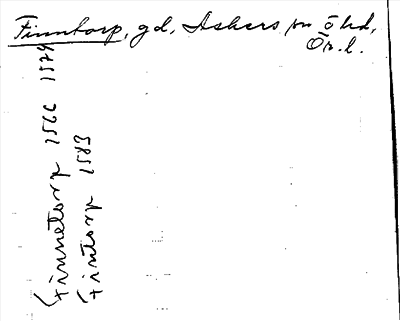 Finntorp, gd, Askers sn ö hd,
Ör. l.
Finnetorp 1566 1579
Fintorp 1583